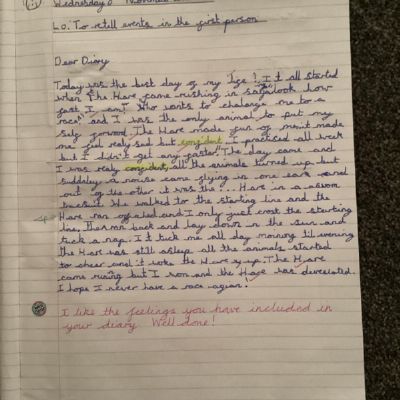 Wednesday
L.O: To retell events in the first person
Dear Diary,
Today was the best day of my life! It all started
when "The Hare came rushing in saying look how
fast I am! Who wants to chalange me to a
race" and I was the only animal to put my
self forward. The Hare made fun of me it made
me feel realy sad but confident. I practised all week
but I didn't get any faster. The day came and
I was realy confident, all the animals turned up but
suddaley a noise came flying in one ear and
out of the other it was the ... Hare in a
He walked to the starting line and the
Hare ran ahead and I only just crost the starting
line, The ran back and lay down in the sun and
tuck a nap. It tuck me all day morning til evening
the Hare was still asleep all the animals started
to cheer and it woke the Hare up. The Hare
came runing but I won and the Hare was
I hope I never have a race again!
I like the feelings you have included in
your diary. Well done!